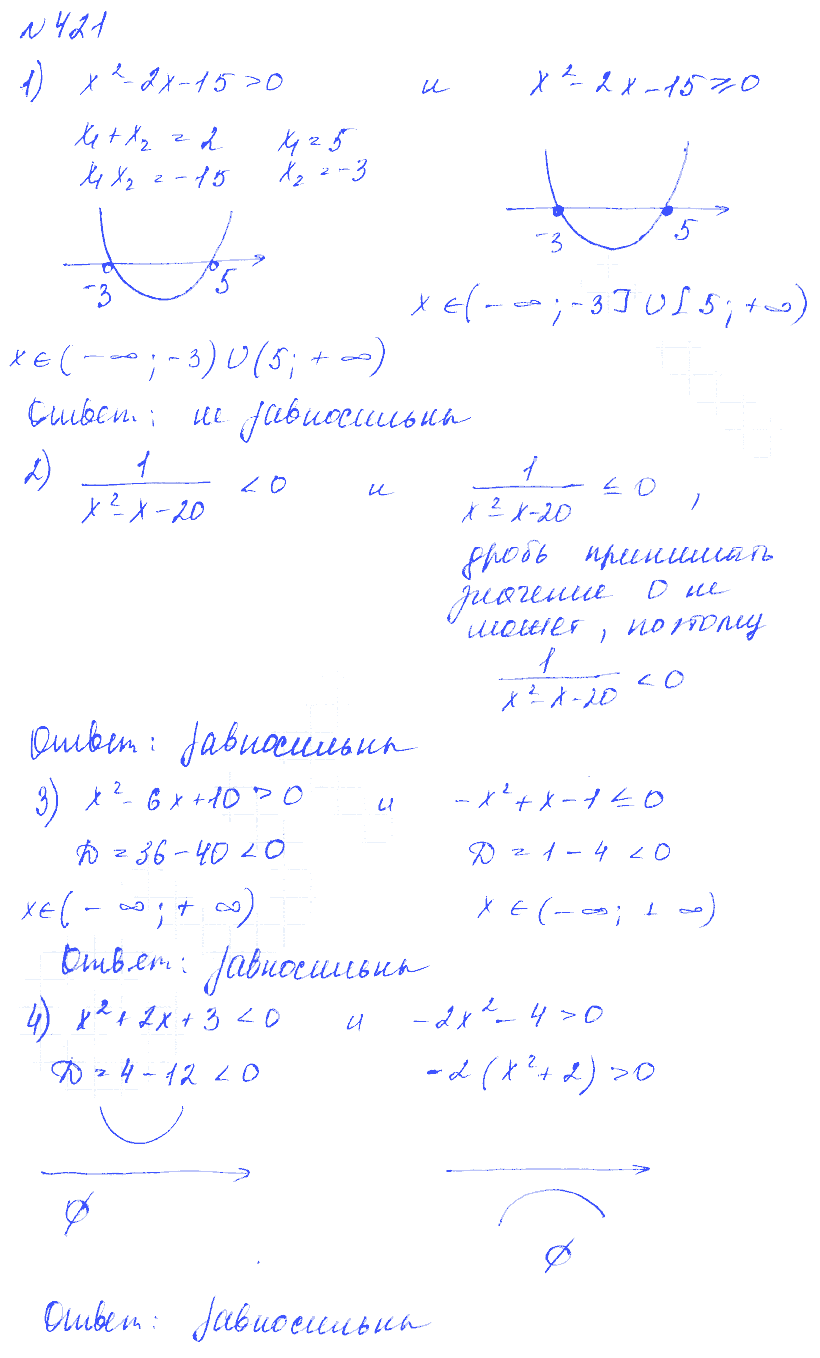 №421
1) x² - 2x - 15 > 0 и x² - 2x - 15 ≥ 0
x₁ + x₂ = 2 x₁ = 5
x₁x₂ = -15 x₂ = -3
-3 5
-3 5
x ∈ (-∞; -3] ∪ [5; +∞)
x ∈ (-∞; -3) ∪ (5; +∞)
Ответ: не равносильны
2) 1/(x² - x - 20) < 0 и 1/(x² - x - 20) ≤ 0 ,
дробь принимать
значение 0 не
может, поэтому
1/(x² - x - 20) < 0
Ответ: равносильны
3) x² - 6x + 10 > 0 и -x² + x - 1 ≤ 0
D = 36 - 40 < 0 D = 1 - 4 < 0
x ∈ (-∞; +∞) x ∈ (-∞; +∞)
Ответ: равносильны
4) x² + 2x + 3 < 0 и -2x² - 4 > 0
D = 4 - 12 < 0 -2(x² + 2) > 0
∅
∅
Ответ: равносильны